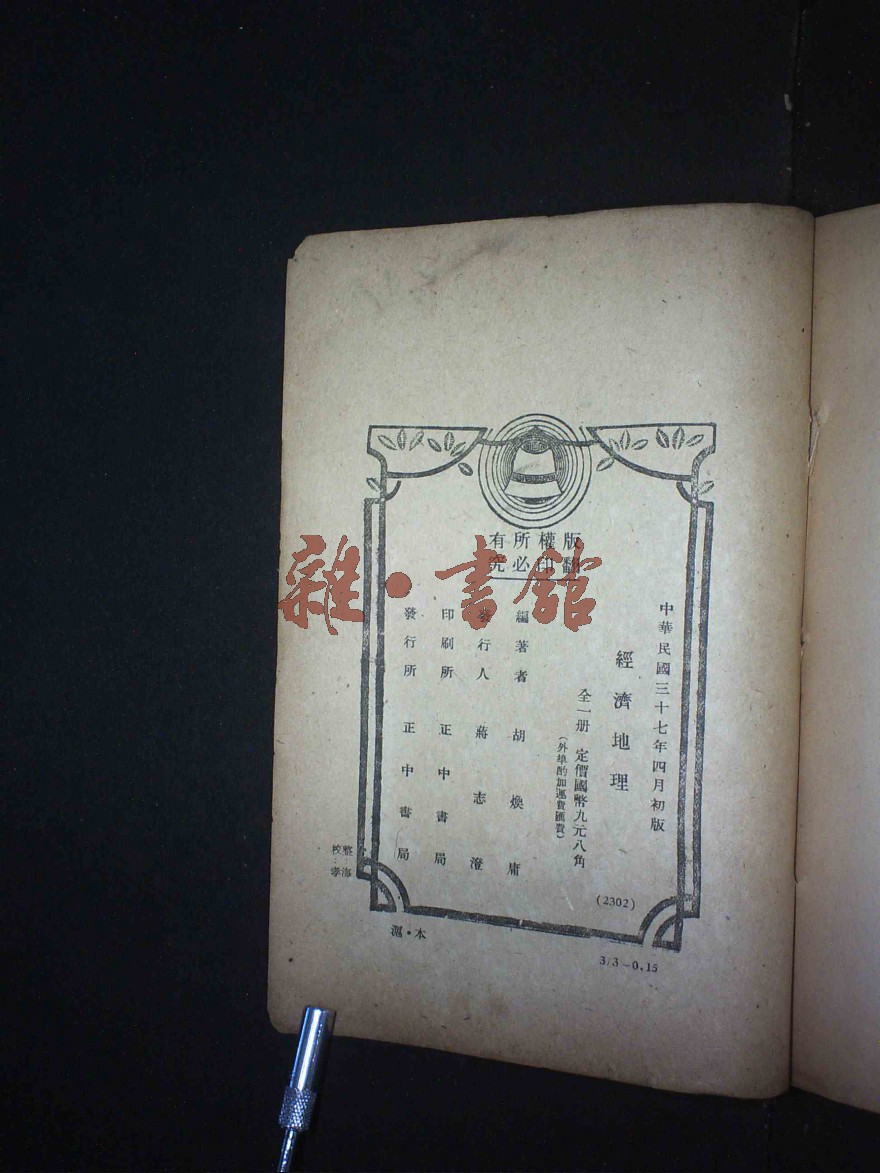 版權所有
翻印必究
中華民國三十七年四月初版
經濟地理
全一册 定價國幣九元八角
(外埠酌加運費匯費)
編著者 胡煥庸
發行人 蔣志澄
印刷所 正中書局
發行所 正中書局
(2302)
整：海
校：孝
滬・本
3/3—0.15
雜・書館